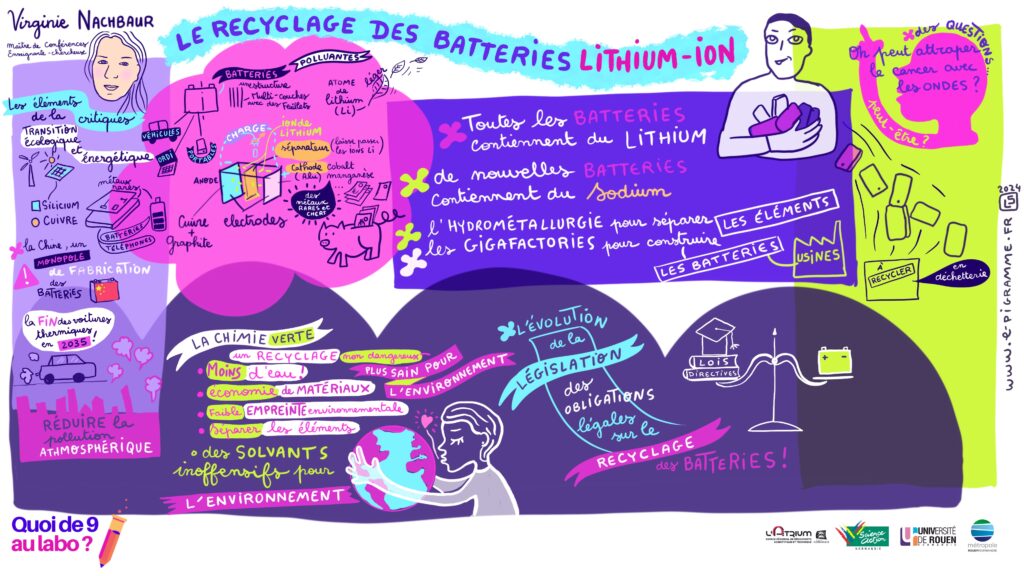 Virginie NACHBAUR
Maître de Conférences
Enseignante-chercheuse
LE RECYCLAGE DES BATTERIES LITHIUM-ION
Les éléments
de la critiques
TRANSITION
écologique
et
énergétique
SILICIUM
CUIVRE
métaux
rares
BATTERIES
TÉLÉPHONES
la Chine, un
MONOPOLE
de FABRICATION
des
BATTERIES
la FIN des voitures
thermiques
en 2035!
RÉDUIRE la
pollution
ATHMOSPHÉRIQUE
BATTERIES
POLLUANTES
une structure
multi-couches
avec des feuillets
ATOME
de
lithium
(Li)
léger
VÉHICULES
ORDI
PORTABLES
CHARGE
ion de
LITHIUM
séparateur
(laisse passer
les IONS Li)
Cathode
(Alu)
cobalt
manganèse
ANODE
Cuivre
+
Graphite
electrodes
des
MÉTAUX
RARES et
CHERS
Toutes les BATTERIES
contiennent du LITHIUM
de nouvelles BATTERIES
contiennent du Sodium
l'HYDROMÉTALLURGIE pour séparer LES ÉLÉMENTS
les GIGAFACTORIES pour construire
LES BATTERIES
USINES
des QUESTIONS...
On peut attraper
le cancer avec
les ONDES?
peut-être?
à
RECYCLER
en
déchetterie
LA CHIMIE VERTE
un RECYCLAGE non dangereux
PLUS SAIN POUR
L'ENVIRONNEMENT
Moins d'eau!
économie de MATÉRIAUX
Faible EMPREINTE environnementale
Séparer les éléments
des SOLVANTS
inoffensifs pour
L'ENVIRONNEMENT
L'ÉVOLUTION
de la
LÉGISLATION
des
OBLIGATIONS
légales
sur le
RECYCLAGE
des BATTERIES!
LOIS
DIRECTIVES
www.e-pigramme.fr
2024
Quoi de 9
au labo ?
L'ATRIUM
Science
Action
NORMANDIE
UNIVERSITÉ
DE ROUEN
NORMANDIE
métropole
ROUENNORMANDIE